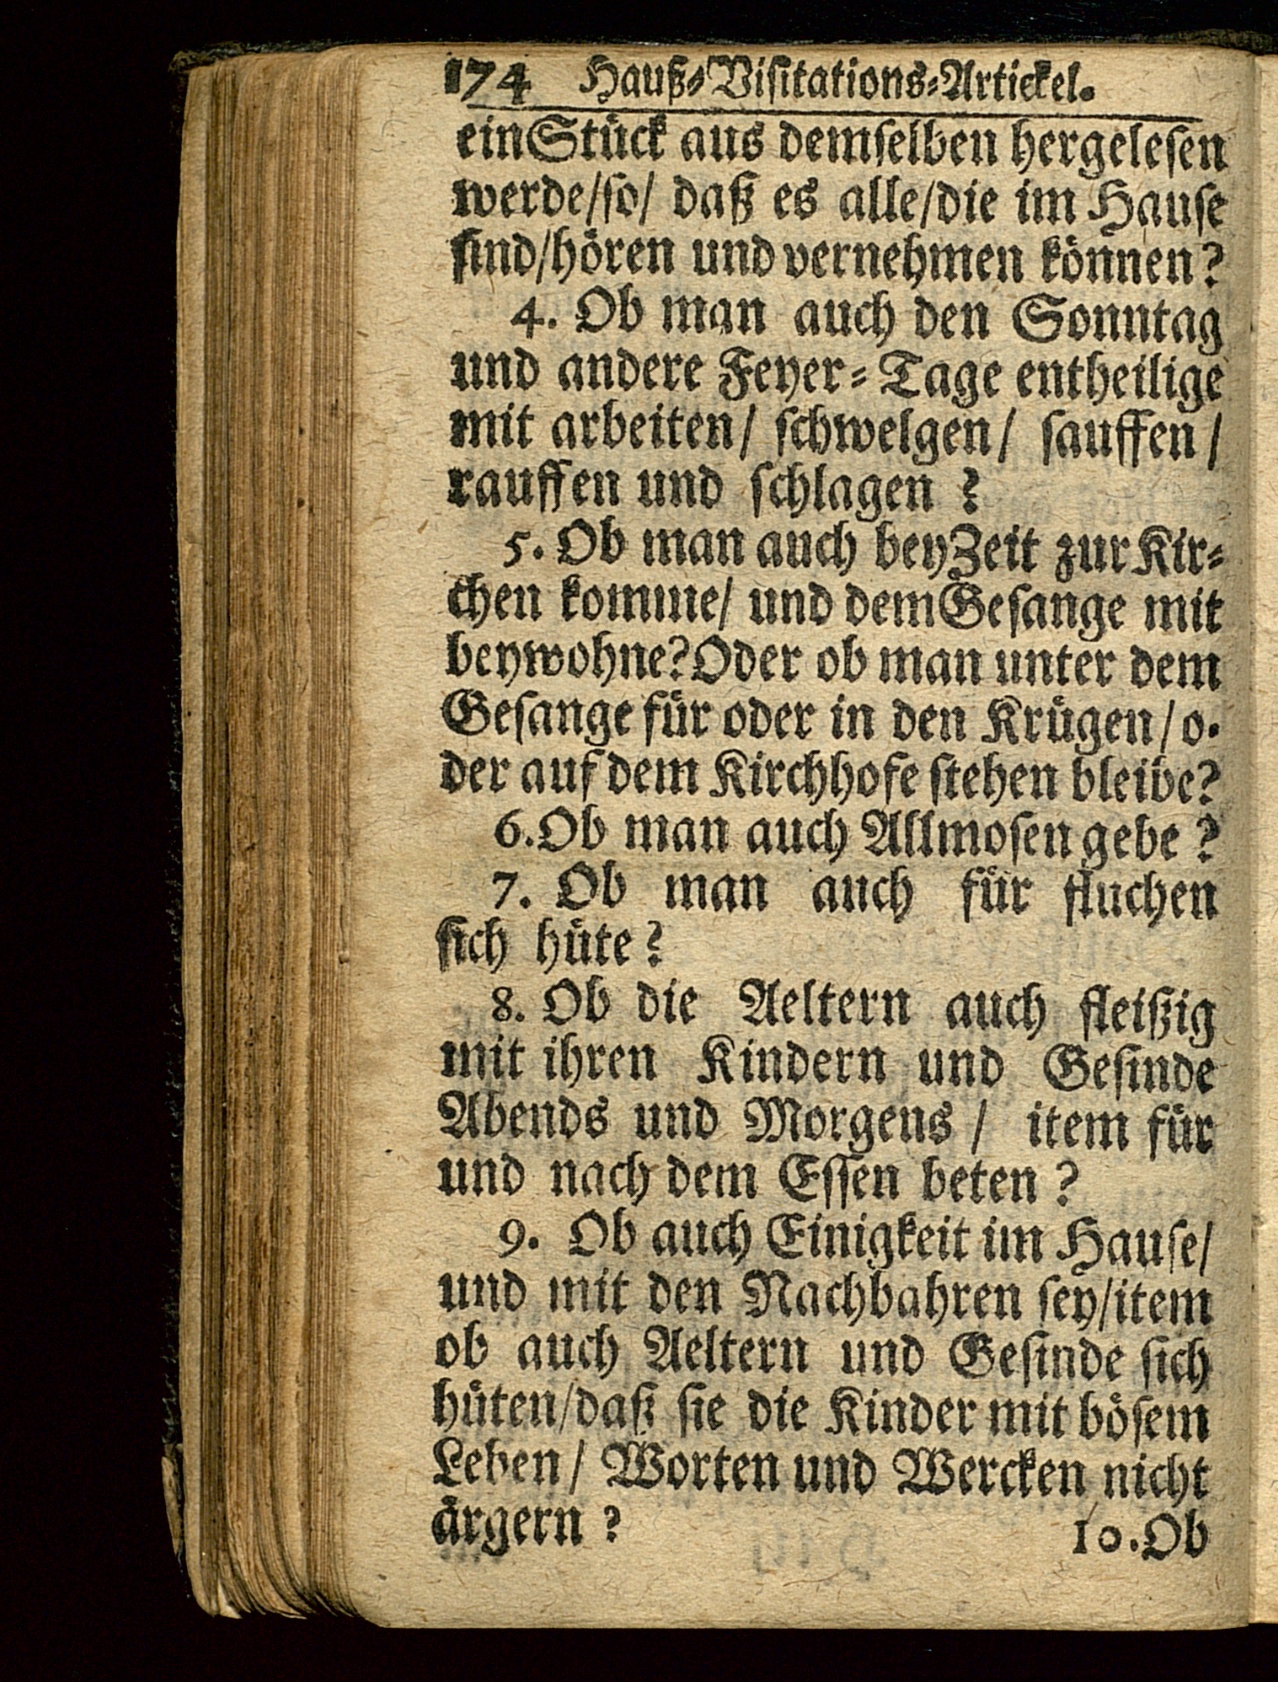 174 Hauß-Visitations-Artickel.
ein Stück aus demselben hergelesen
werde/so/ daß es alle/die im Hause
sind/hören und vernehmen können?
4. Ob man auch den Sonntag
und andere Feyer-Tage entheilige
mit arbeiten/ schwelgen/ sauffen/
rauffen und schlagen?
5. Ob man auch bey Zeit zur Kir-
chen komme/ und dem Gesange mit
beywohne? Oder ob man unter dem
Gesange für oder in den Krügen/o-
der auf dem Kirchhofe stehen bleibe?
6. Ob man auch Allmosen gebe?
7. Ob man auch für fluchen
sich hüte?
8. Ob die Aeltern auch fleißig
mit ihren Kindern und Gesinde
Abends und Morgens/ item für
und nach dem Essen beten?
9. Ob auch Einigkeit im Hause/
und mit den Nachbahren sey/item
ob auch Aeltern und Gesinde sich
hüten/daß sie die Kinder mit bösem
Leben/ Worten und Wercken nicht
ärgern?
10. Ob